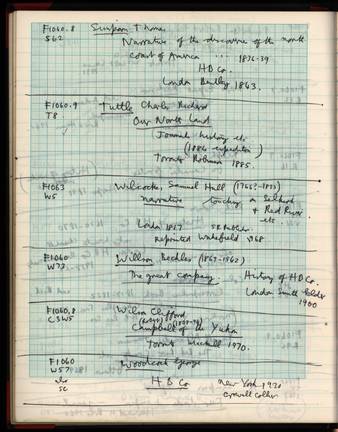 F1060.8 Simpson Thomas
S62
Narrative of the discoveries of the north
coast of America .... 1836-39
HB Co.
London Bentley 1843.
F1060.9 Tuttle Charles Richard
T8
Our North Land
Journal, history etc
(1884 expedition)
Toronto Robinson 1885.
F1063 Wilcocke, Samuel Hull (1766?-1833)
W5
narrative touching a Selkirk
+ Red River
etc
London 1817
reprinted Wakefield 1968
F1060 Willson Beckles (1869-1942)
W73
The great company. History of HB Co.
London Smith Elder
1900
F1060.8 Wilson Clifford
C3W5
Campbell of the Yukon
Toronto 1970.
F1060 Woodcock George
W57
H.B. Co New York 1970
SC Crowell Collier